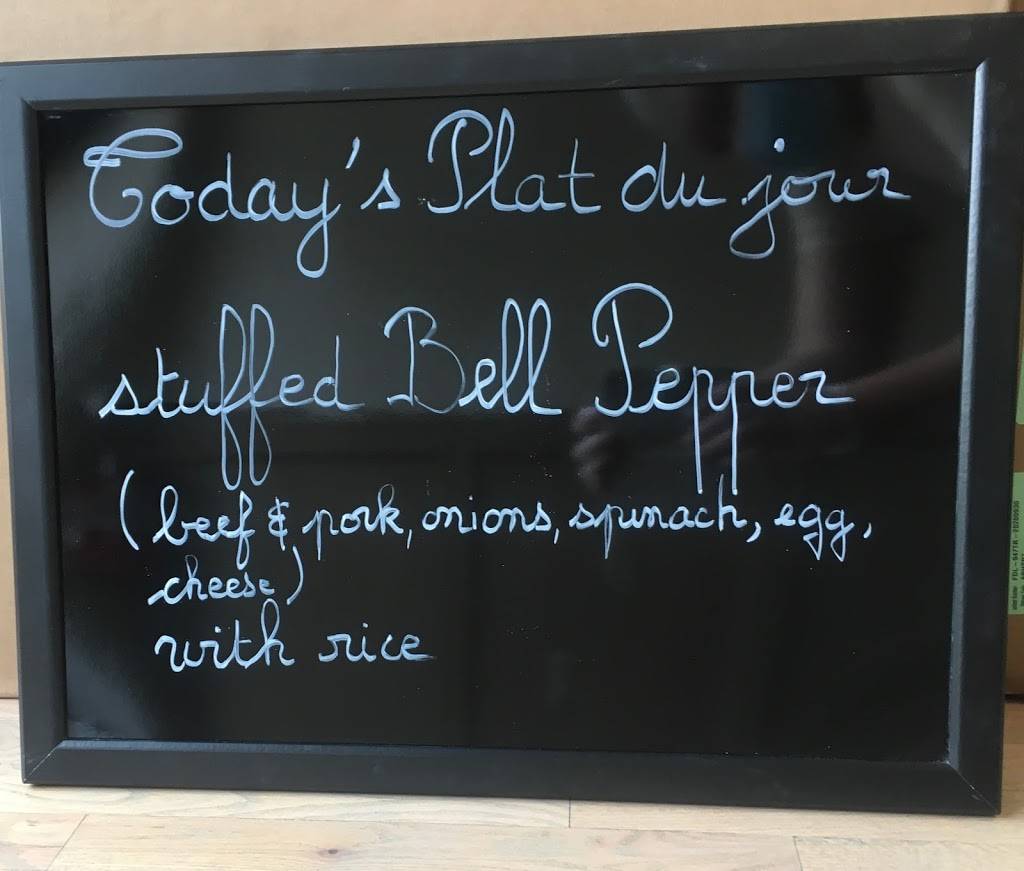 Today's Plat du jour
stuffed Bell Pepper
(beef & pork, onions, spinach, egg,
cheese)
with rice